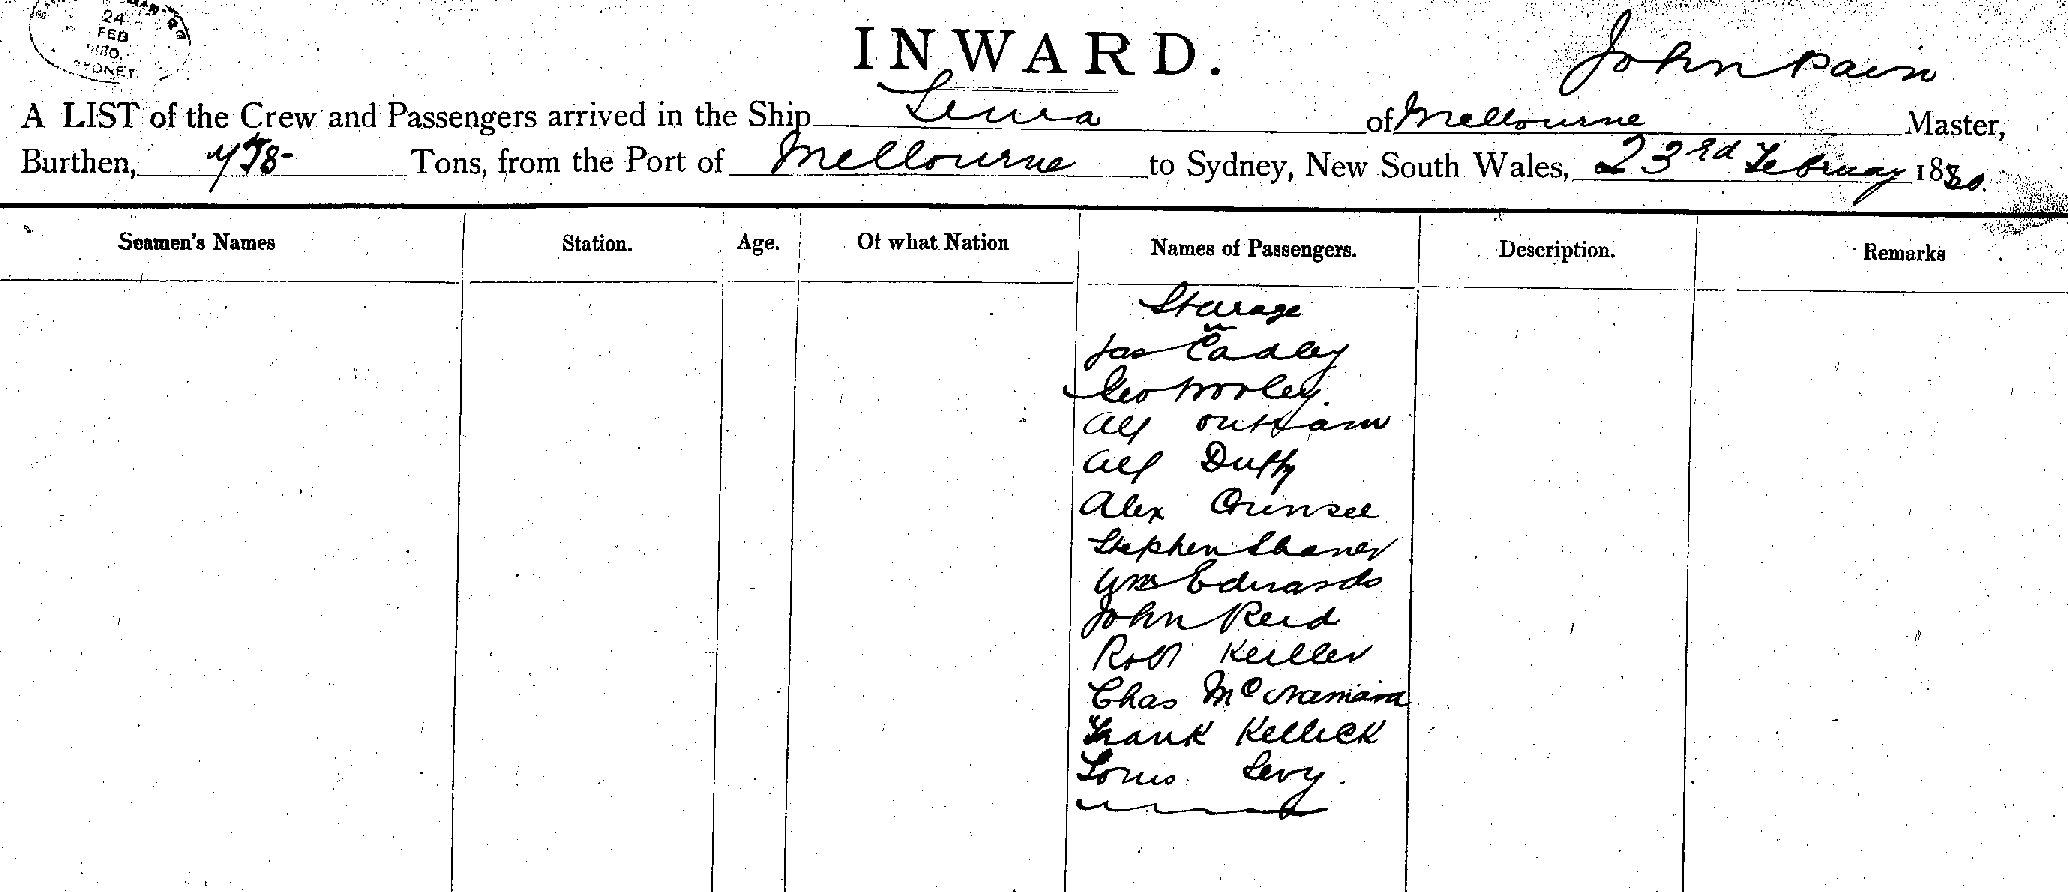 24
FEB
SYDNEY
INWARD.
John Pain
A LIST of the Crew and Passengers arrived in the Ship of Melbourne Master,
Burthen, Tons, from the Port of Melbourne to Sydney, New South Wales, 23rd February 1880.
Seamen's Names Station. Age. Of what Nation Names of Passengers. Description. Remarks
Sturage
Jas Eadley
Geo Worley.
Alf Outtram
Alf Duffy
Alex Counsel
Stephen
Wm Edwards
John Reid
Robt Keiller
Chas McNamara
Frank Kellick
Louis Levy.